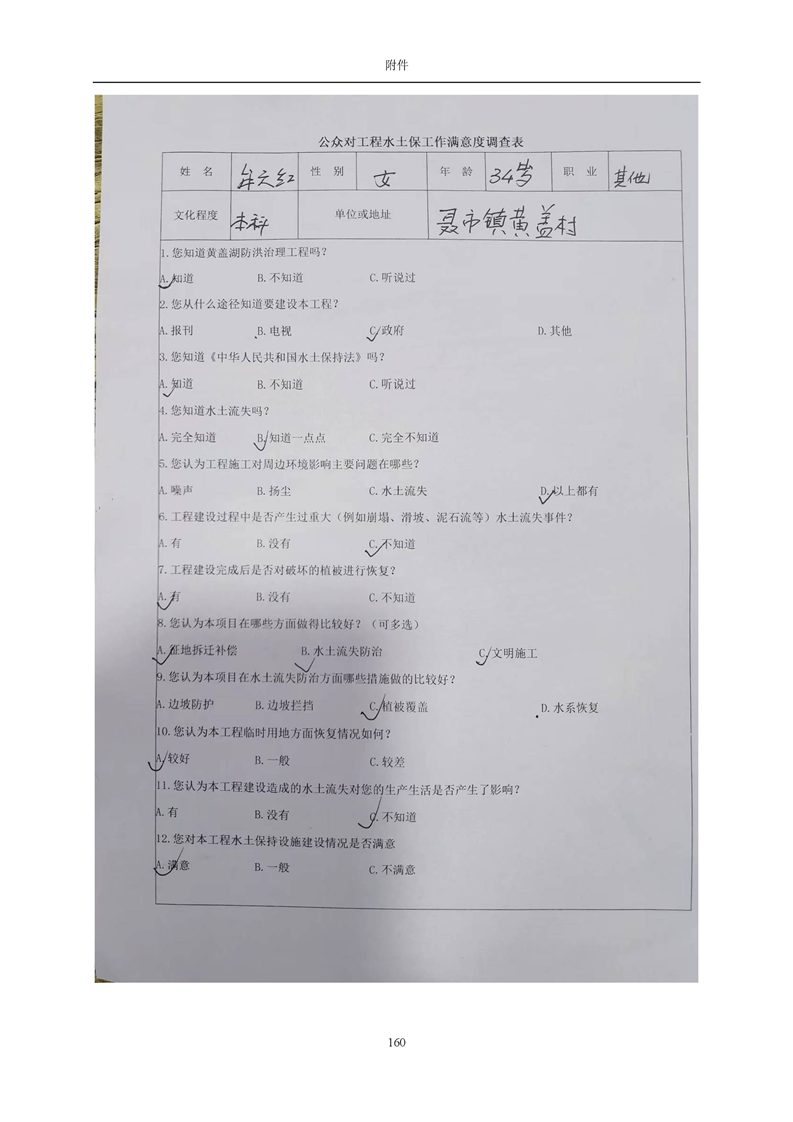 附件
公众对工程水土保工作满意度调查表
姓 名 牟天红 性 别 女 年 龄 34岁 职 业 其他
文化程度 本科 单位或地址 聂市镇黄盖村
1.您知道黄盖湖防洪治理工程吗?
A.知道 B.不知道 C.听说过
2.您从什么途径知道要建设本工程?
A.报刊 B.电视 C.政府 D.其他
3.您知道《中华人民共和国水土保持法》吗?
A.知道 B.不知道 C.听说过
4.您知道水土流失吗?
A.完全知道 B.知道一点点 C.完全不知道
5.您认为工程施工对周边环境影响主要问题在哪些?
A.噪声 B.扬尘 C.水土流失 D.以上都有
6.工程建设过程中是否产生过重大(例如崩塌、滑坡、泥石流等)水土流失事件?
A.有 B.没有 C.不知道
7.工程建设完成后是否对破坏的植被进行恢复?
A.有 B.没有 C.不知道
8.您认为本项目在哪些方面做得比较好?(可多选)
A.征地拆迁补偿 B.水土流失防治 C.文明施工
9.您认为本项目在水土流失防治方面哪些措施做的比较好?
A.边坡防护 B.边坡拦挡 C.植被覆盖 D.水系恢复
10.您认为本工程临时用地方面恢复情况如何?
A.较好 B.一般 C.较差
11.您认为本工程建设造成的水土流失对您的生产生活是否产生了影响?
A.有 B.没有 C.不知道
12.您对本工程水土保持设施建设情况是否满意
A.满意 B.一般 C.不满意
160